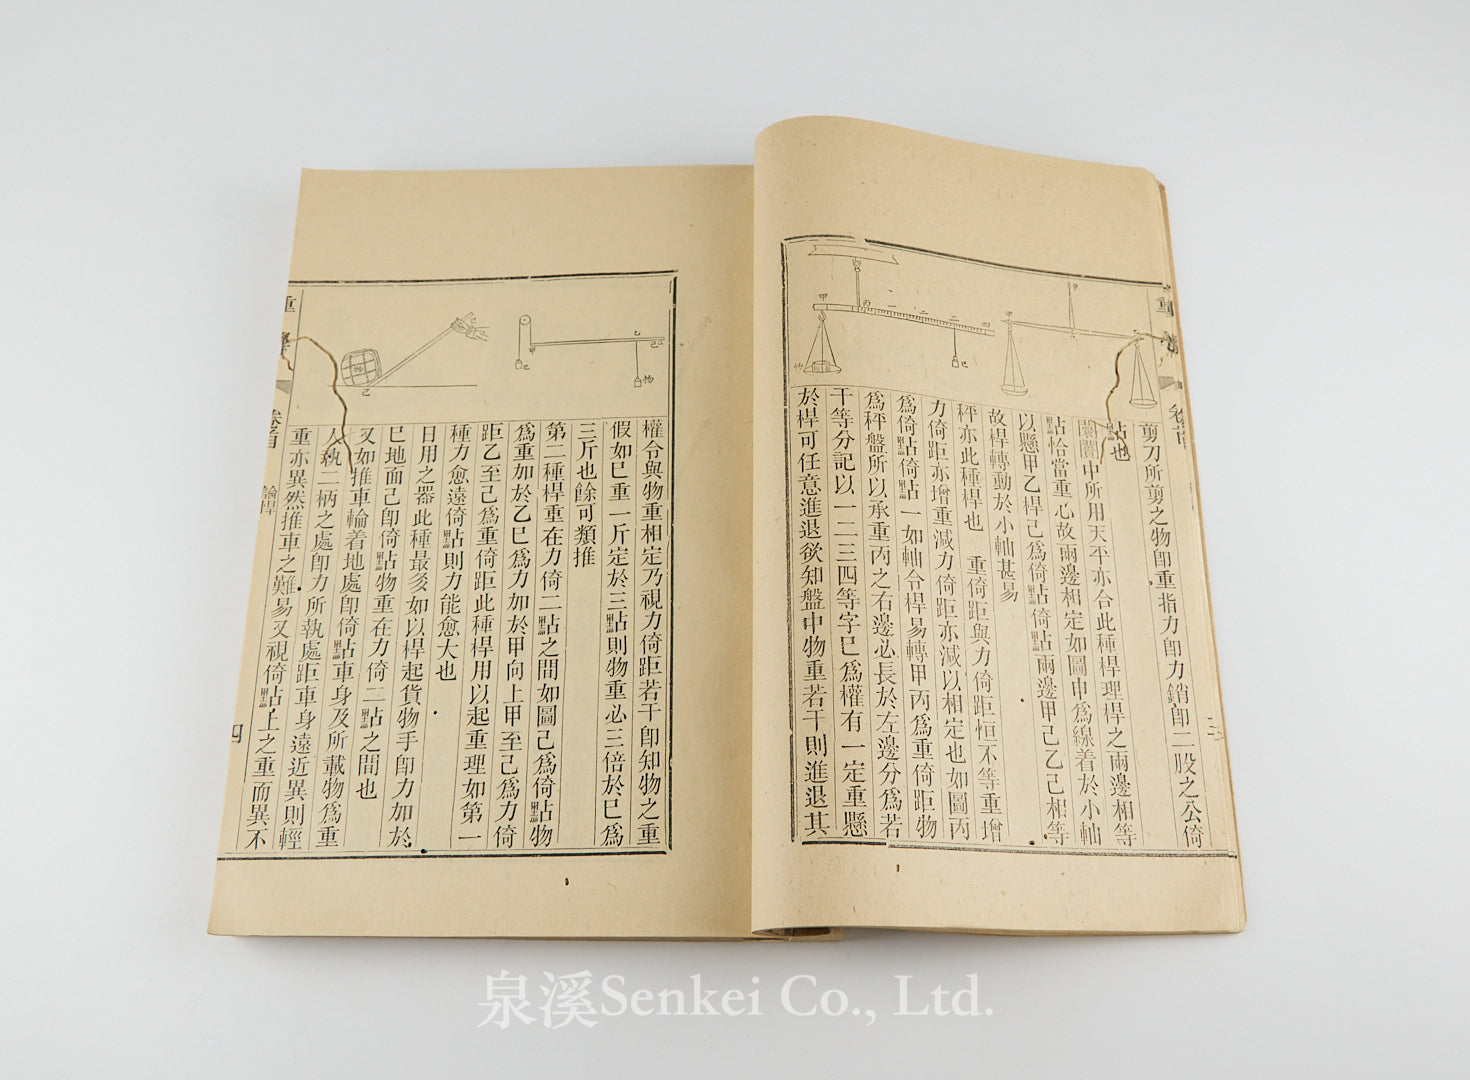 重學
卷首
剪刀所剪之物卽重指力卽力銷卽二股之公倚
點也
闤闠中所用天平亦合此種桿理桿之兩邊相等
點恰當重心故兩邊相定如圖中爲線着於小軸
以懸甲乙桿己爲倚點倚點兩邊甲己乙己相等
故桿轉動於小軸甚易
秤亦此種桿也 重倚距與力倚距恒不等重增
力倚距亦增重減力倚距亦減以相定也如圖丙
爲倚點倚點一如軸令桿易轉甲丙爲重倚距物
爲秤盤所以承重丙之右邊必長於左邊分爲若
干等分記以一二三四等字巳爲權有一定重懸
於桿可任意進退欲知盤中物重若干則進退其
權令與物重相定乃視力倚距若干卽知物之重
假如巳重一斤定於三點則物重必三倍於巳爲
三斤也餘可類推
第二種桿重在力倚二點之間如圖己爲倚點物
爲重加於乙巳爲力加於甲向上甲至己爲力倚
距乙至己爲重倚距此種桿用以起重理如第一
種力愈遠倚點則力能愈大也
日用之器此種最多如以桿起貨物手卽力加於
巳地面己卽倚點物重在力倚二點之間也
又如推車輪着地處卽倚點車身及所載物爲重
人執二柄之處卽力所執處距車身遠近異則輕
重亦異然推車之難易又視倚點上之重而異不
重學
卷首
論桿
四
甲
丙
一
二
三
四
巳
物
甲
乙
己
巳
甲
物
乙
己
物
己
泉溪Senkei Co., Ltd.